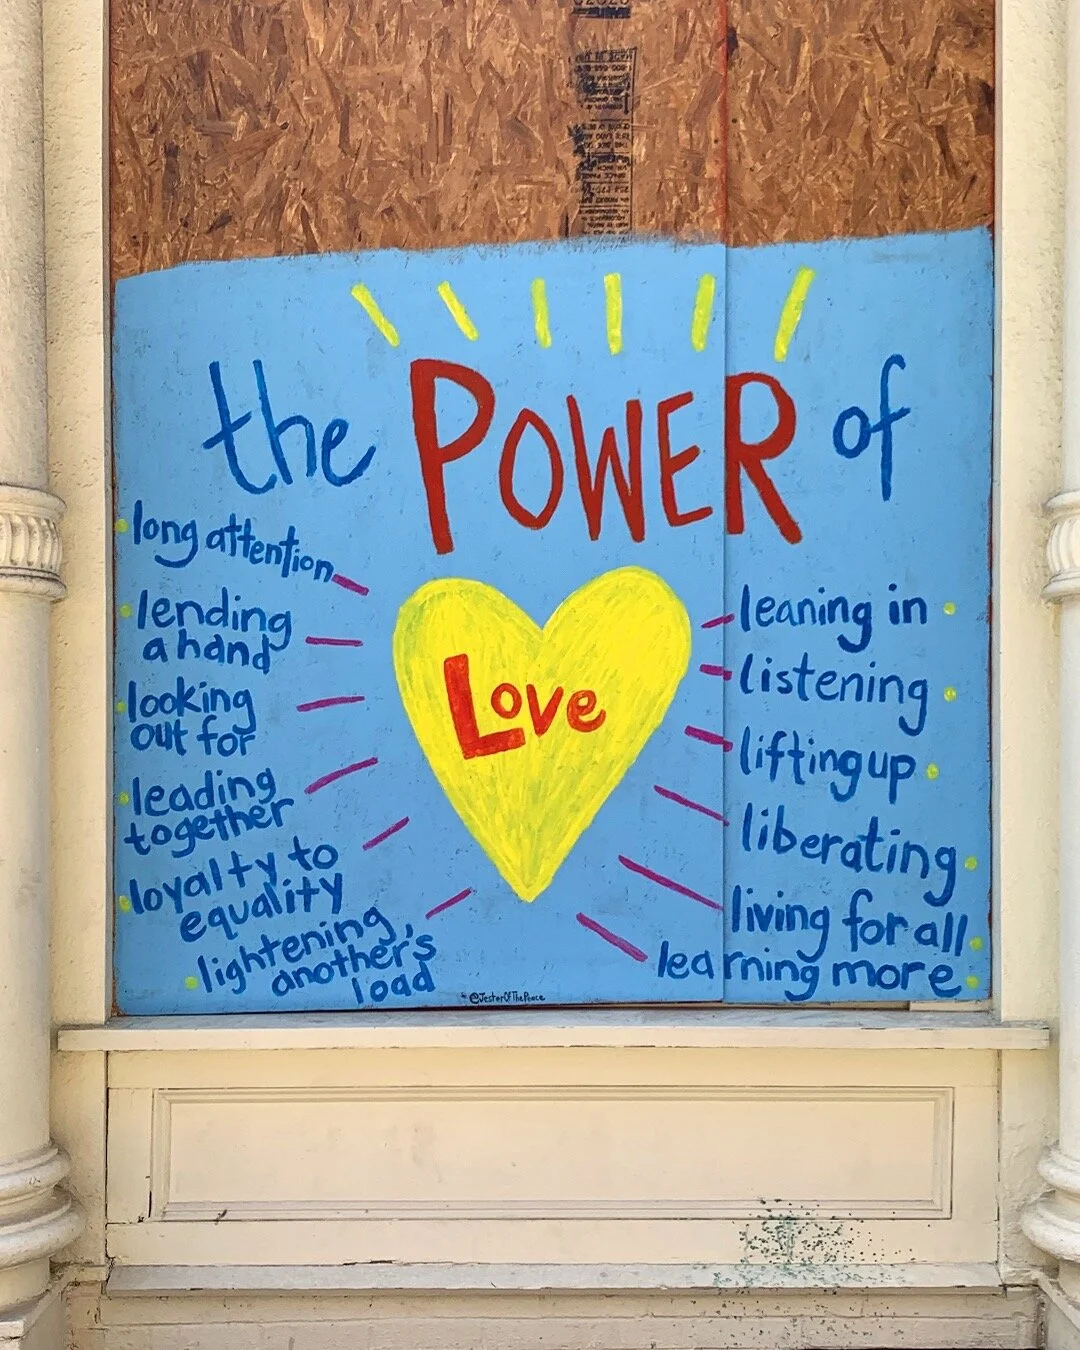 the POWER of
long attention
lending
a hand
looking
out for
leading
together
loyalty to
equality
lightening
another's
load
Love
leaning in
listening
lifting up
liberating
living for all
learning more
@JesterOfThePeace